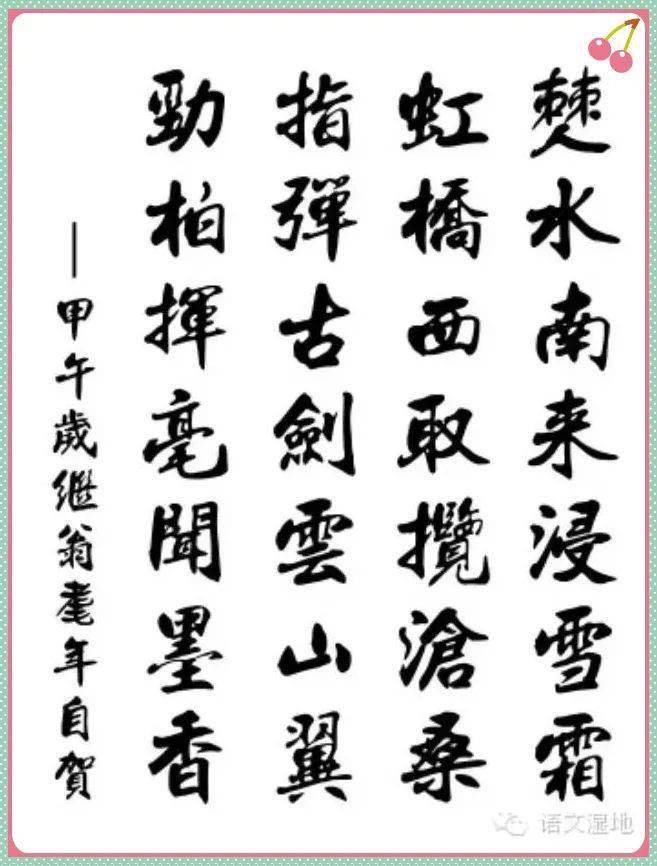 僰水南来浸雪霜
虹橋西取攬滄桑
指彈古劍雲山翼
勁柏揮毫聞墨香
——甲午歲继翁耄年自賀
语文湿地